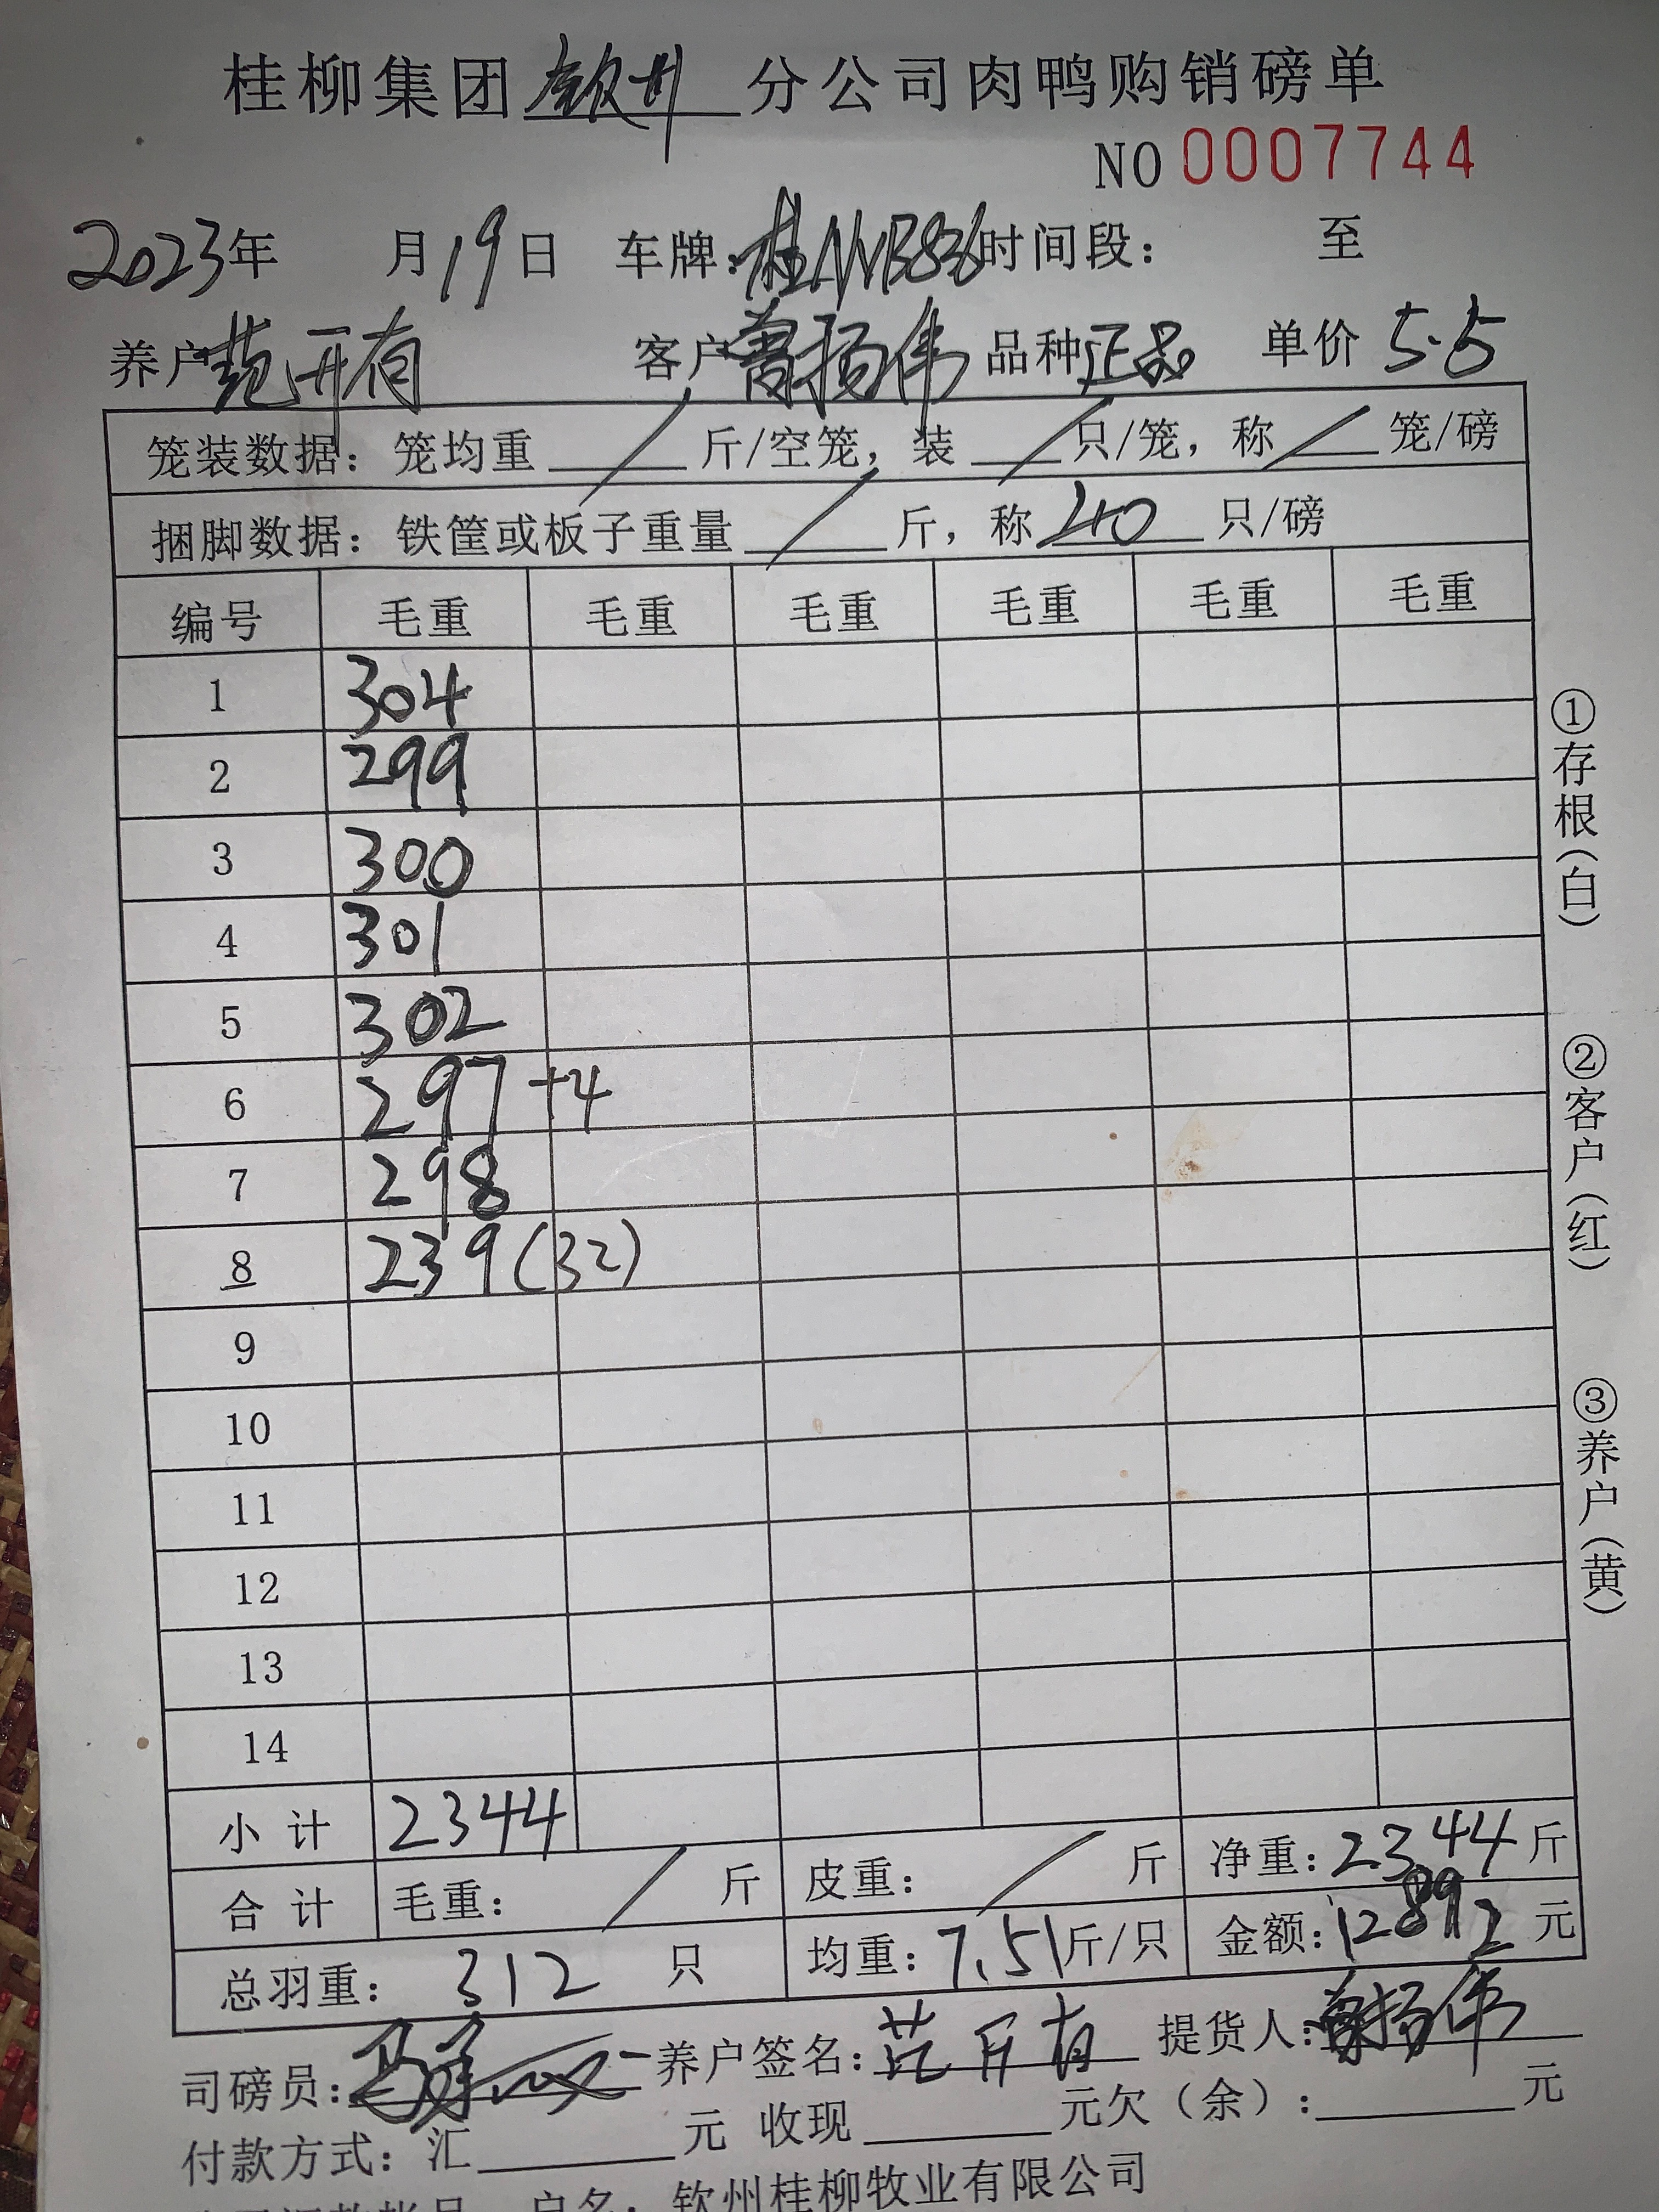 桂柳集团钦州分公司肉鸭购销磅单
NO 0007744
2023年 月19日 车牌:桂NYB836时间段: 至
养户范开有 客户曾扬伟 品种正品 单价 5.5
笼装数据: 笼均重 / 斤/空笼, 装 / 只/笼, 称 / 笼/磅
捆脚数据: 铁筐或板子重量 / 斤, 称 40 只/磅
编号 毛重 毛重 毛重 毛重 毛重 毛重
1 304
2 299
3 300
4 301
5 302
6 297 +4
7 298
8 239(32)
9
10
11
12
13
14
小计 2344
合计 毛重: / 斤 皮重: / 斤 净重:2344斤
总羽重: 312 只 均重:7.51斤/只 金额:12892元
司磅员: 养户签名:范开有 提货人:曾扬伟
付款方式: 汇 元 收现 元欠(余): 元
户名: 钦州桂柳牧业有限公司
①存根(白)
②客户(红)
③养户(黄)